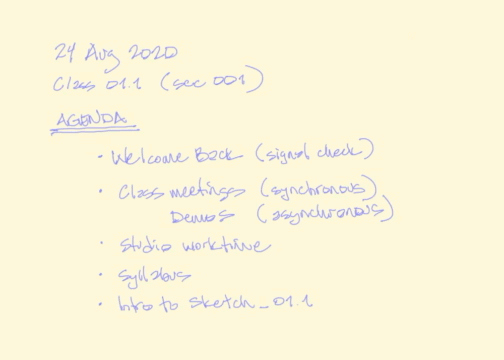 24 Aug 2020
Class 01.1 (sec 001)
AGENDA
• Welcome Back (signal check)
• Class meetings (synchronous)
Demos (asynchronous)
• Studio worktime
• Syllabus
• Intro to Sketch_01.1